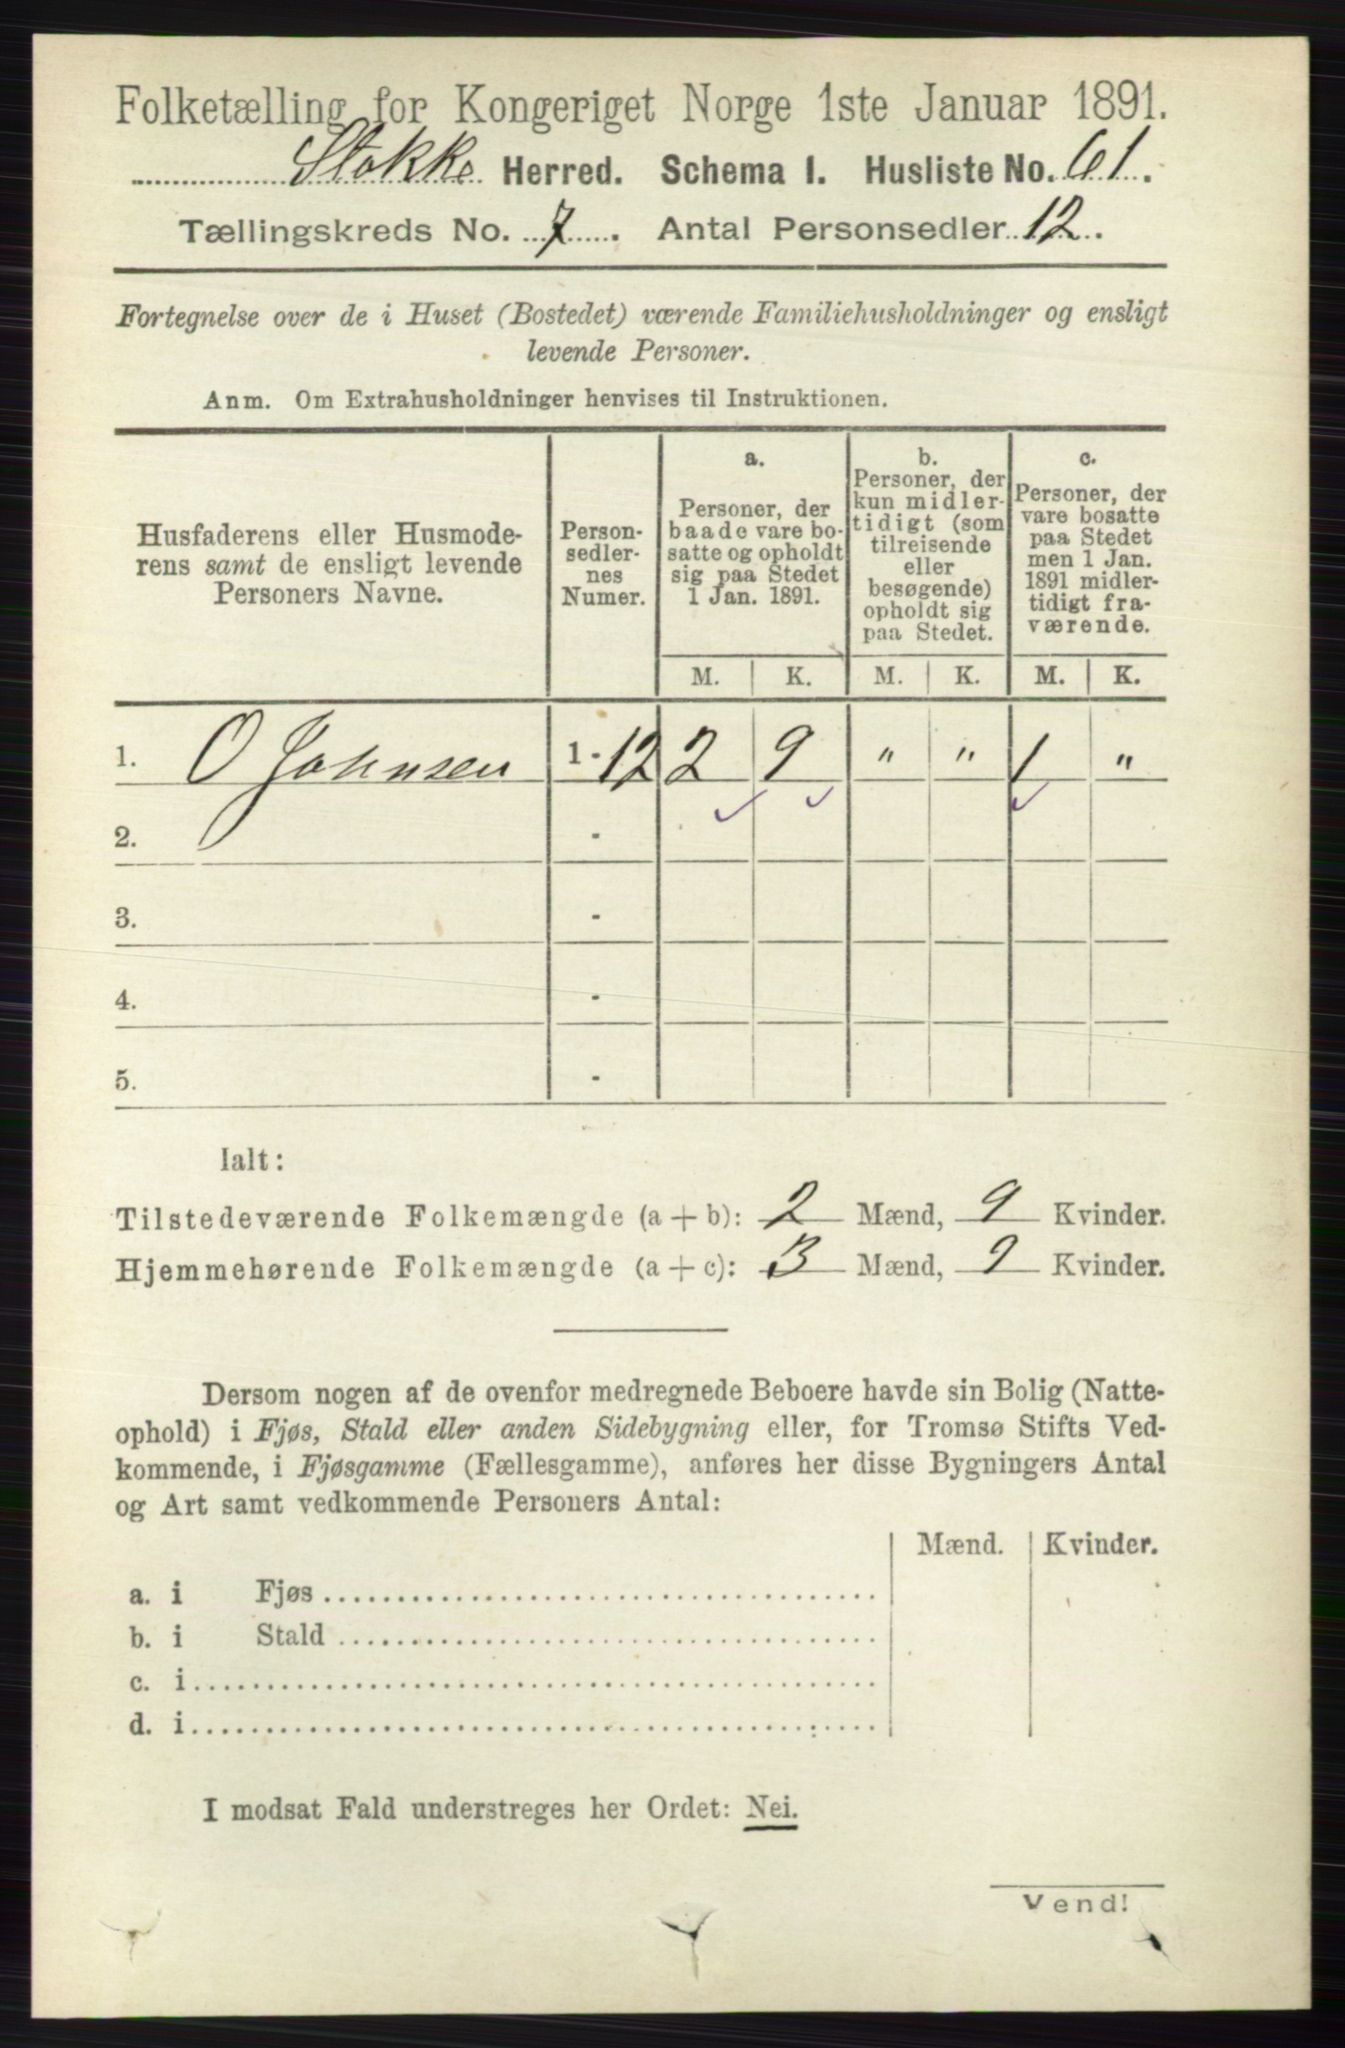 Folketælling for Kongeriget Norge 1ste Januar 1891.
Stokke Herred. Schema I. Husliste No. 61.
Tællingskreds No. 7. Antal Personsedler 12.
Fortegnelse over de i Huset (Bostedet) værende Familiehusholdninger og ensligt
levende Personer.
Anm. Om Extrahusholdninger henvises til Instruktionen.
Husfaderens eller Husmode-
rens samt de ensligt levende
Personers Navne.
Person-
sedler-
nes
Numer.
a.
Personer, der
baade vare bo-
satte og opholdt
sig paa Stedet
1 Jan. 1891.
b.
Personer, der
kun midler-
tidigt (som
tilreisende
eller
besøgende)
opholdt sig
paa Stedet.
c.
Personer, der
vare bosatte
paa Stedet
men 1 Jan.
1891 midler-
tidigt fra-
værende.
M. K. M. K. M. K.
1. O Johnsen 1 - 12 2 9 " " 1 "
2. -
3. -
4. -
5. -
Ialt:
Tilstedeværende Folkemængde (a + b): 2 Mænd, 9 Kvinder.
Hjemmehørende Folkemængde (a + c): 3 Mænd, 9 Kvinder.
Dersom nogen af de ovenfor medregnede Beboere havde sin Bolig (Natte-
ophold) i Fjøs, Stald eller anden Sidebygning eller, for Tromsø Stifts Ved-
kommende, i Fjøsgamme (Fællesgamme), anføres her disse Bygningers Antal
og Art samt vedkommende Personers Antal:
Mænd. Kvinder.
a. i Fjøs
b. i Stald
c. i
d. i
I modsat Fald understreges her Ordet: Nei.
Vend!